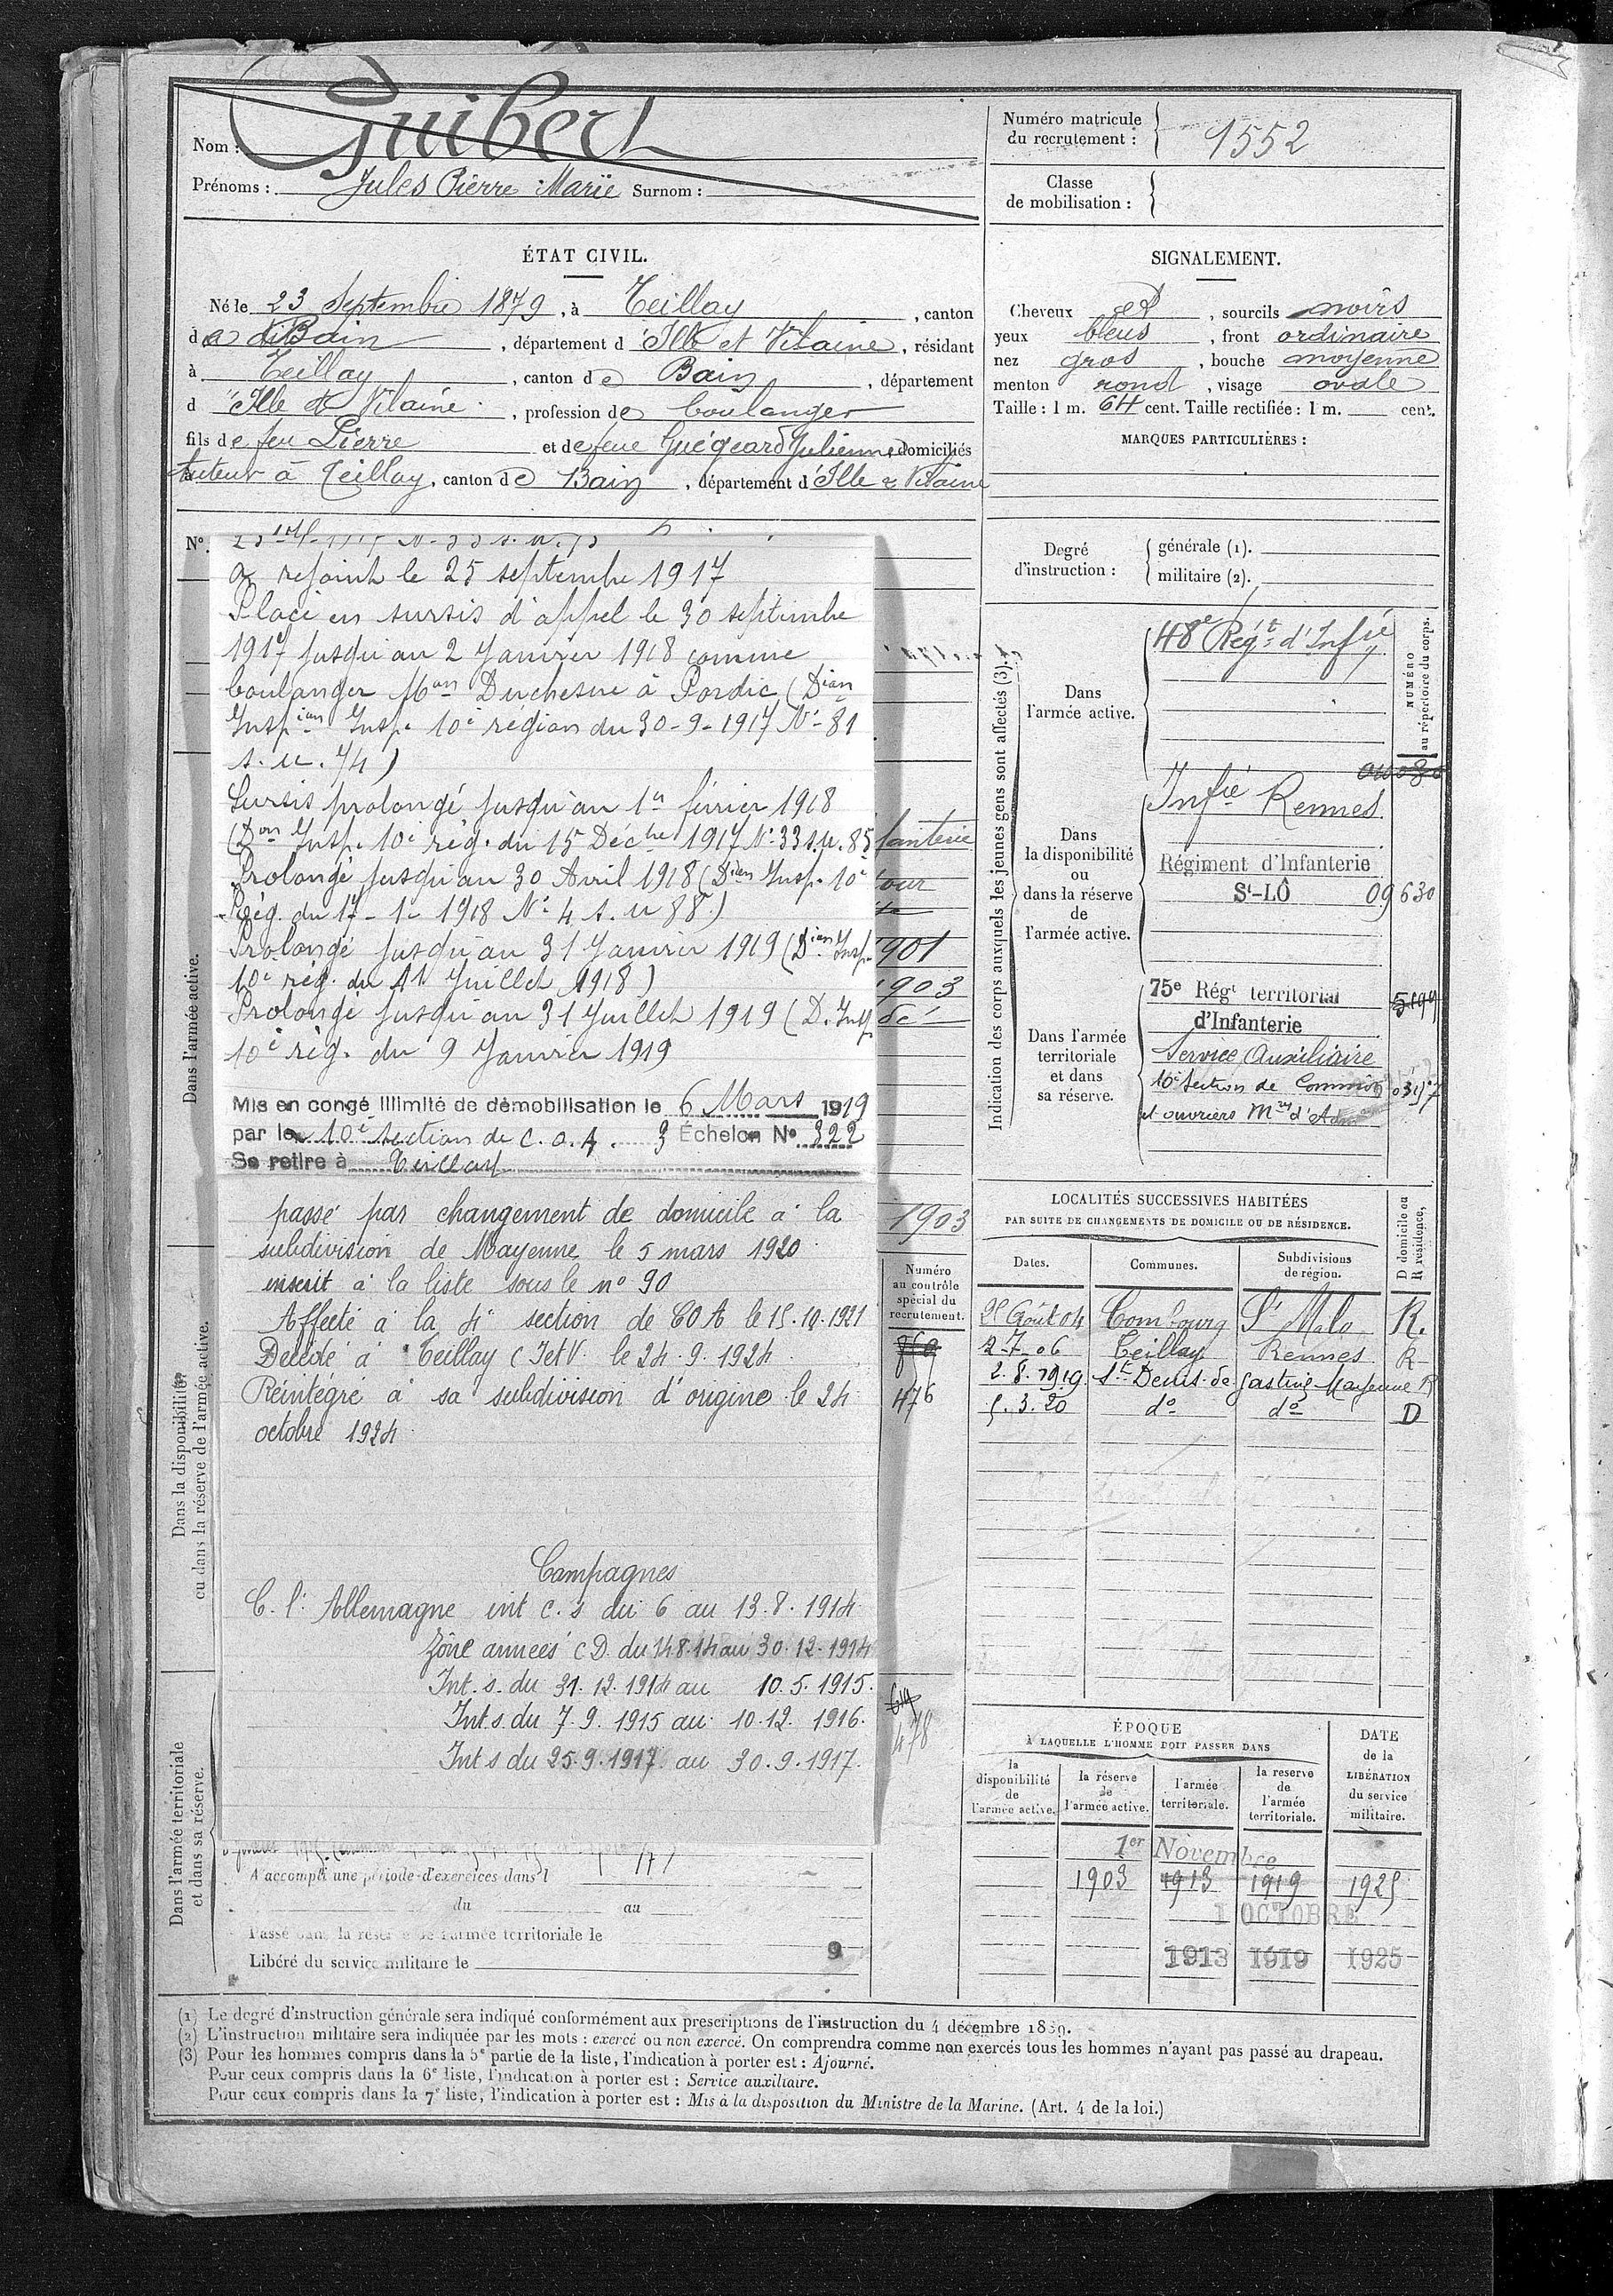 Nom : Guibert
Prénoms : Jules Pierre Marie Surnom :
Numéro matricule du recrutement : 1552
Classe de mobilisation :
ÉTAT CIVIL.
Né le 23 Septembre 1879, à Teillay, canton
de Bain, département d'Ille et Vilaine, résidant
à Teillay, canton de Bain, département
d'Ille et Vilaine, profession de boulanger
fils de feu Pierre et de feue Guégeard Julienne domiciliés
tuteur à Teillay, canton de Bain, département d'Ille & Vilaine
SIGNALEMENT.
Cheveux et, sourcils noirs
yeux bleus, front ordinaire
nez gros, bouche moyenne
menton rond, visage ovale
Taille : 1 m. 64 cent. Taille rectifiée : 1 m. cent.
MARQUES PARTICULIÈRES :
Degré d'instruction : générale (1).
militaire (2).
N°.
a rejoint le 25 septembre 1917
Placé en sursis d'appel le 30 septembre
1917 jusqu'au 2 Janvier 1918 comme
boulanger Mon Duchesne à Pordic (Dian
Inspian Insp. 10e région du 30-9-1917 N°-81
s.u. 74)
Sursis prolongé jusqu'au 1er février 1918
(Don Insp. 10e rég. du 15 Décbre 1917 N°33 s.u. 85
Prolongé jusqu'au 30 Avril 1918 (Dian Insp. 10e
Rég. du 17-1-1918 N° 4 s.u 88)
Prolongé jusqu'au 31 Janvier 1919 (Dian Insp.
10e rég. du 11 Juillet 1918)
Prolongé jusqu'au 31 Juillet 1919 (D. Insp.
10e rég. du 9 Janvier 1919
Mis en congé illimité de démobilisation le 6 Mars 1919
par le 10e section de C.O.A. 3 Échelon N° 322
Se retire à Teillay
passé par changement de domicile à la
subdivision de Mayenne le 5 mars 1920
inscrit à la liste sous le n° 90
Affecté à la 4e section de COA le 15.10.1921
Décédé à Teillay (IetV. le 24.9.1924
Réintégré à sa subdivision d'origine le 24
octobre 1924
Campagnes
C. l'Allemagne int c.s du 6 au 13.8.1914
Zône armées CD. du 14.8.14 au 30.12.1914
Int. s. du 31.12.1914 au 10.5.1915.
Int.s. du 7.9.1915 au 10.12.1916.
Int s du 25.9.1917 au 30.9.1917.
fanterie
our
1901
1903
1903
Numéro au contrôle spécial du recrutement.
476
478
Dans l'armée active.
Dans la disponibilité ou dans la réserve de l'armée active.
Dans l'armée territoriale et dans sa réserve.
A accompli une période d'exercices dans l
du au
Passé dans la réserve de l'armée territoriale le
Libéré du service militaire le
9
Indication des corps auxquels les jeunes gens sont affectés (3).
NUMÉRO au répertoire du corps.
Dans l'armée active.
48e Régt d'Infie
Dans la disponibilité ou dans la réserve de l'armée active.
Infie Rennes
Régiment d'Infanterie
St-LÔ 09630
Dans l'armée territoriale et dans sa réserve.
75e Régt territorial 5199
d'Infanterie
Service Auxiliaire
10e Section de Commis
et ouvriers Mres d'Adm
LOCALITÉS SUCCESSIVES HABITÉES
PAR SUITE DE CHANGEMENTS DE DOMICILE OU DE RÉSIDENCE.
Dates. Communes. Subdivisions de région. D domicile ou R résidence,
25 Août 04 Combourg St Malo R.
2-7-06 Teillay Rennes R
2.8.1919 St Denis de Gastine Mayenne R
5.3.20 do do D
ÉPOQUE
À LAQUELLE L'HOMME DOIT PASSER DANS
DATE de la LIBÉRATION du service militaire.
la disponibilité de l'armée active.
la réserve de l'armée active.
l'armée territoriale.
la reserve de l'armée territoriale.
1er Novembre
1903 1913 1919 1925
1 OCTOBRE
1913 1919 1925
(1) Le degré d'instruction générale sera indiqué conformément aux prescriptions de l'instruction du 4 décembre 1889.
(2) L'instruction militaire sera indiquée par les mots : exercé ou non exercé. On comprendra comme non exercés tous les hommes n'ayant pas passé au drapeau.
(3) Pour les hommes compris dans la 5e partie de la liste, l'indication à porter est : Ajourné.
Pour ceux compris dans la 6e liste, l'indication à porter est : Service auxiliaire.
Pour ceux compris dans la 7e liste, l'indication à porter est : Mis à la disposition du Ministre de la Marine. (Art. 4 de la loi.)